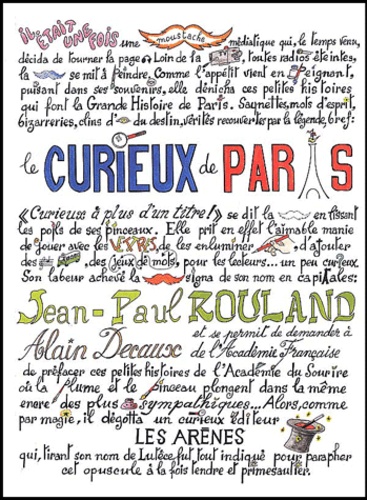 IL ÉTAIT UNE FOIS une moustache médiatique qui, le temps venu,
décida de tourner la page. Loin de la, toutes radios éteintes,
la se mit à peindre. Comme l'appétit vient en peignant,
puisant dans ses souvenirs, elle dénicha ces petites histoires
qui font la Grande Histoire de Paris. Saynettes, mots d'esprit,
bizarreries, clins d' du destin, vérités recouvertes par la légende, bref:
le CURIEUX de PARIS
«Curieuse à plus d'un titre!» se dit la en lissant
les poils de ses pinceaux. Elle prit en effet l'aimable manie
de jouer avec les LETTRES, de les enluminer, d'ajouter
des, des jeux de mots, pour les lecteurs... un peu curieux.
Son labeur achevé la signa de son nom en capitales:
Jean-Paul ROULAND
et se permit de demander à
Alain Decaux de l'Académie Française
de préfacer ces petites histoires de l'Académie du Sourire
où la plume et le pinceau plongent dans la même
encre des plus sympathiques... Alors, comme
par magie, il dégotta un curieux éditeur
LES ARÈNES
qui, tirant son nom de Lutèce, fut tout indiqué pour parapher
cet opuscule à la fois tendre et primesautier.